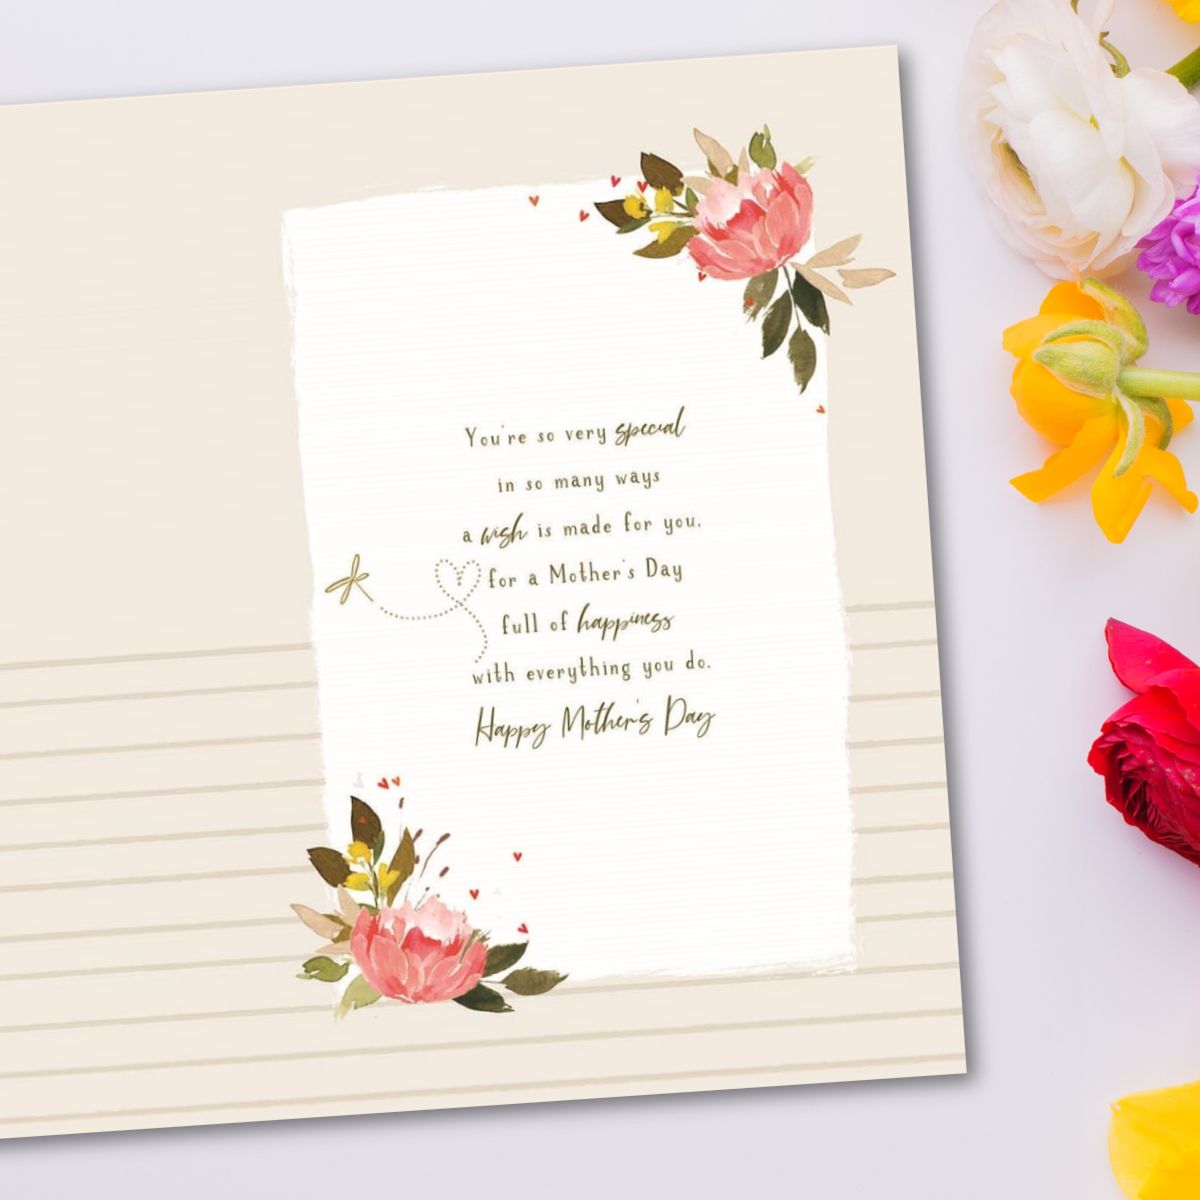 You're so very special
in so many ways
a wish is made for you.
for a Mother's Day
full of happiness
with everything you do.
Happy Mother's Day